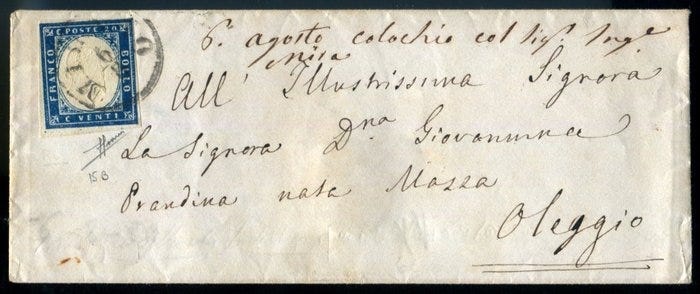 C. POSTE 20
FRANCO
BOLLO
C. VENTI
6. agosto colochio col Sig.
All' Illustrissima Signora
La Signora Dna Giovannina
Prandina nata Mazza
Oleggio
15B